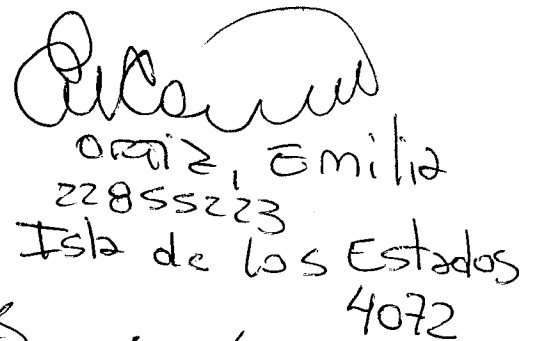 Ortiz, Emilia
22855223
Isla de los Estados
4072